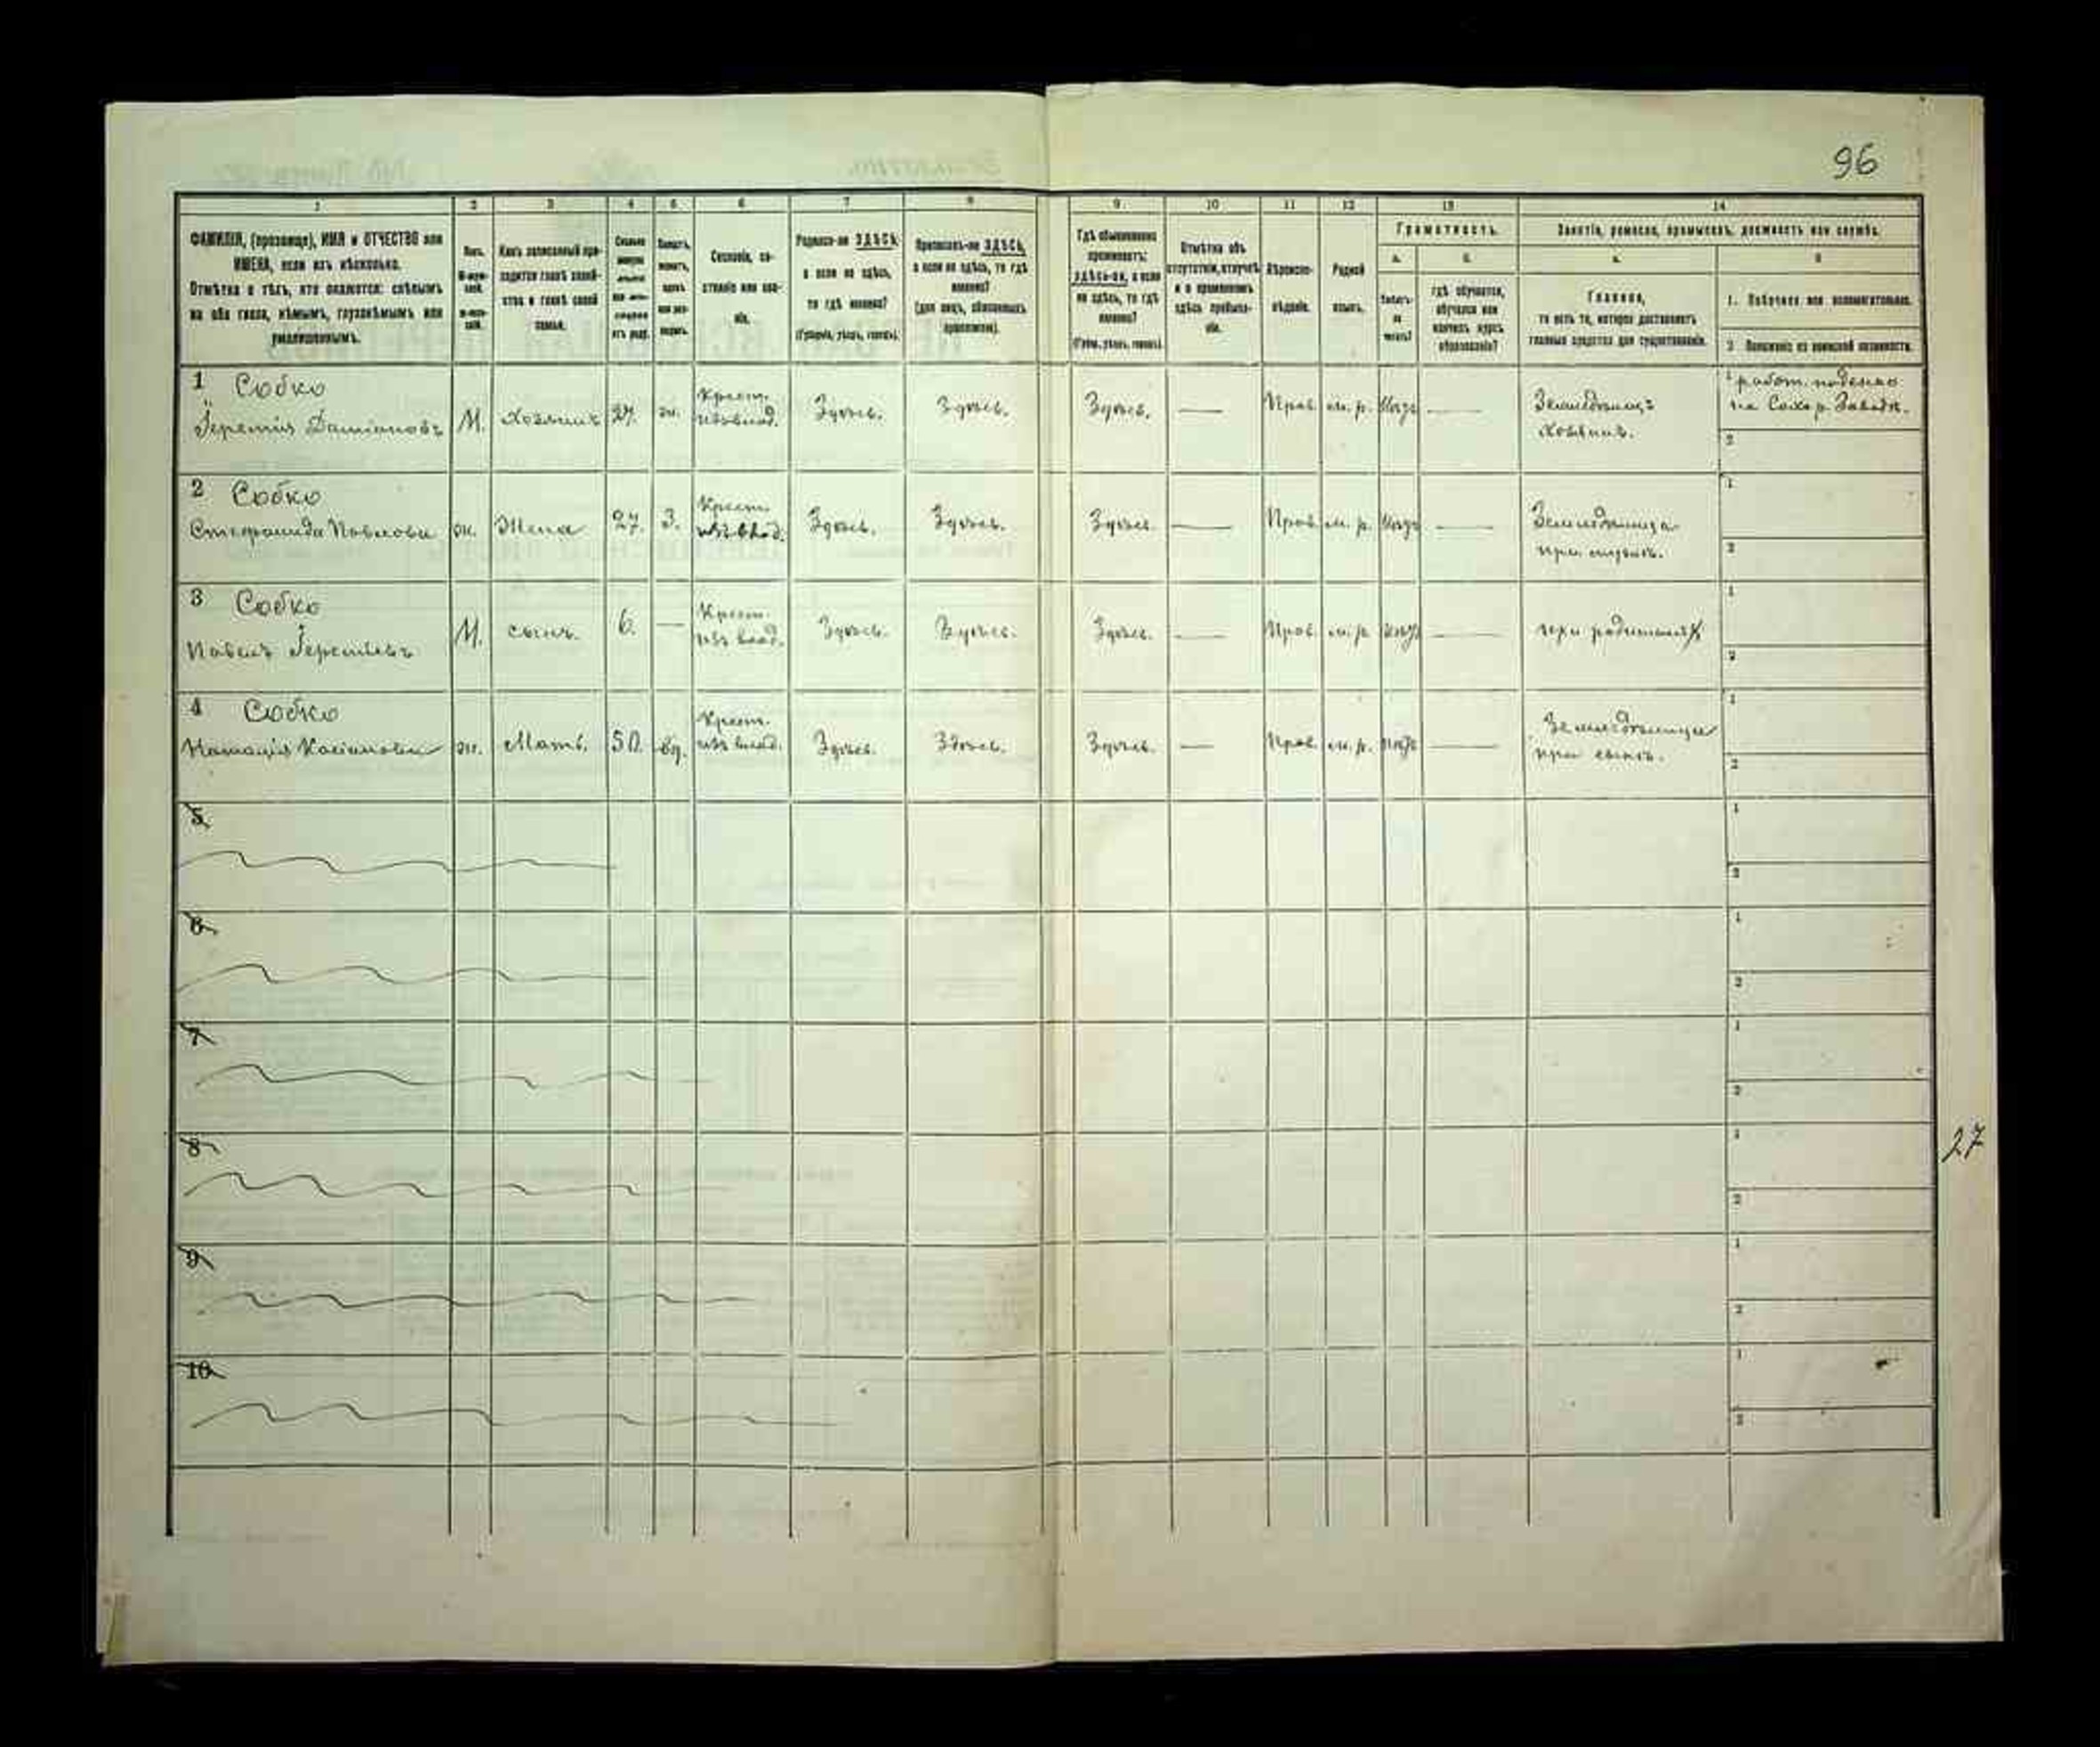 96
1 2 3 4 5 6 7 8 9 10 11 12 13 14
ФАМИЛІЯ, (прозвище), ИМЯ и ОТЧЕСТВО или
ИМЕНА, если ихъ нѣсколько.
Отмѣтка о тѣхъ, кто окажется: слѣпымъ
на оба глаза, нѣмымъ, глухонѣмымъ или
умалишеннымъ.
Полъ.
Какъ записанный приходится главѣ хозяйства и главѣ своей семьи.
Сословіе, состояніе или званіе.
Родился-ли ЗДѢСЬ,
а если не здѣсь,
то гдѣ именно?
(Губернія, уѣздъ, городъ).
Приписанъ-ли ЗДѢСЬ,
а если не здѣсь, то гдѣ
именно?
(для лицъ, обязанныхъ
припискою).
Гдѣ обыкновенно
проживаетъ:
ЗДѢСЬ-ли, а если
не здѣсь, то гдѣ
именно?
(Губ., уѣздъ, городъ).
Отмѣтка объ
отсутствіи, отлучкѣ
и о временномъ
здѣсь пребываніи.
Вѣроисповѣданіе.
Родной
языкъ.
Грамотность.
а. б.
Умѣетъ-ли
читать?
гдѣ обучается,
обучался или
кончилъ курсъ
образованія?
Занятіе, ремесло, промыселъ, должность или служба.
а. б.
Главное,
то есть то, которое доставляетъ
главныя средства для существованія.
1. Побочное или вспомогательное.
2. Положеніе по воинской повинности.
1 Собко
Іеремія Даміановъ М. Хозяинъ 27. ж. Крест. изъ влад. Здѣсь. Здѣсь. Здѣсь. — Прав. м. р. — Земледѣлецъ
хозяинъ.
1 работ. поденно
на Сахар. Заводѣ.
2
2 Собко
Стефанида Павлова ж. Жена 27. З. Крест. изъ влад. Здѣсь. Здѣсь. Здѣсь — Прав. м. р. — Земледѣлица
при мужѣ.
1
2
3 Собко
Павелъ Іереміевъ М. сынъ. 6. — Крест. изъ влад. Здѣсь. Здѣсь. Здѣсь. — Прав. м. р. — при родителях
1
2
4 Собко
Наталія Касіанова ж. Мать. 50. вд. Крест. изъ влад. Здѣсь. Здѣсь. Здѣсь. — Прав. м. р. — Земледѣлица
при сынѣ.
1
2
5
1
2
6
1
2
7
1
2
8
1
27
2
9
1
2
10
1
2